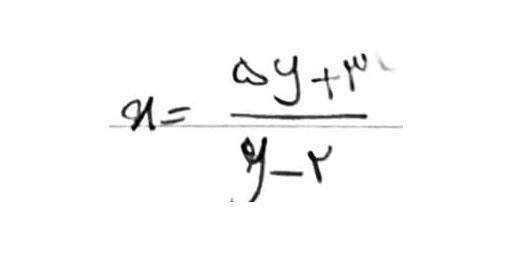 x = (۵y + ۳) / (y - ۲)